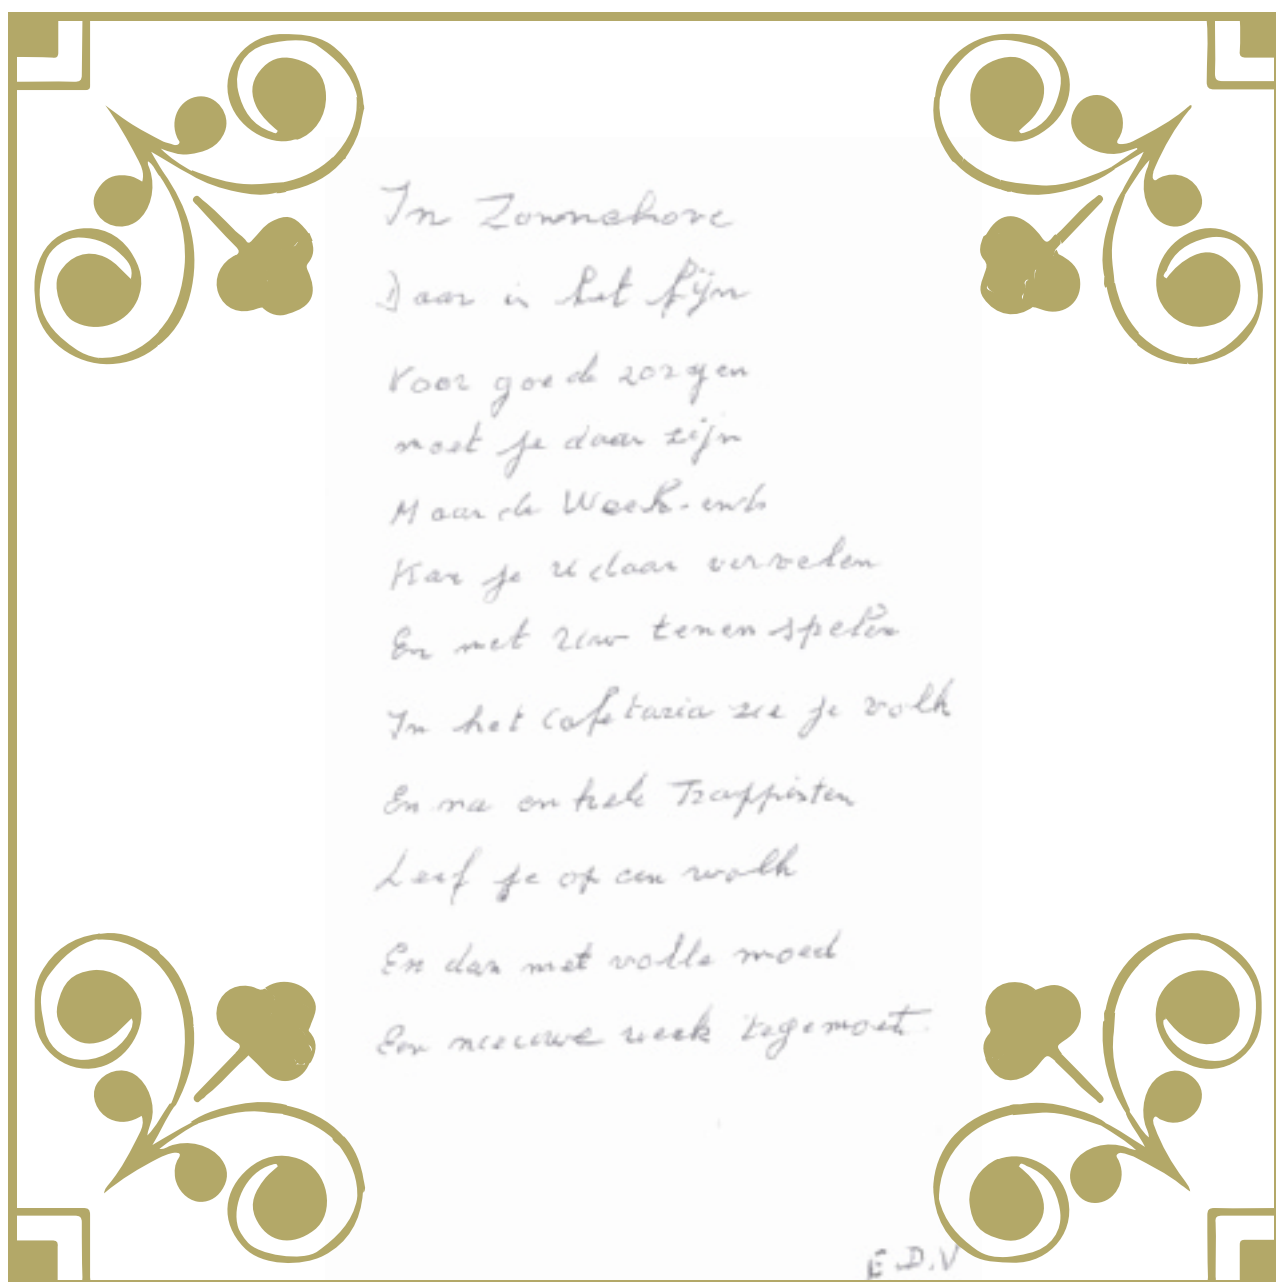 In Zonnehove
Daar is het fijn
Voor goede zorgen
moet je daar zijn
Maar de Week-ends
Kan je U daar vervelen
En met Uw tenen spelen
In het Cafetaria zie je volk
En na enkele Trappisten
Leef je op een wolk
En dan met volle moed
Een nieuwe week tegemoet.
E.D.V